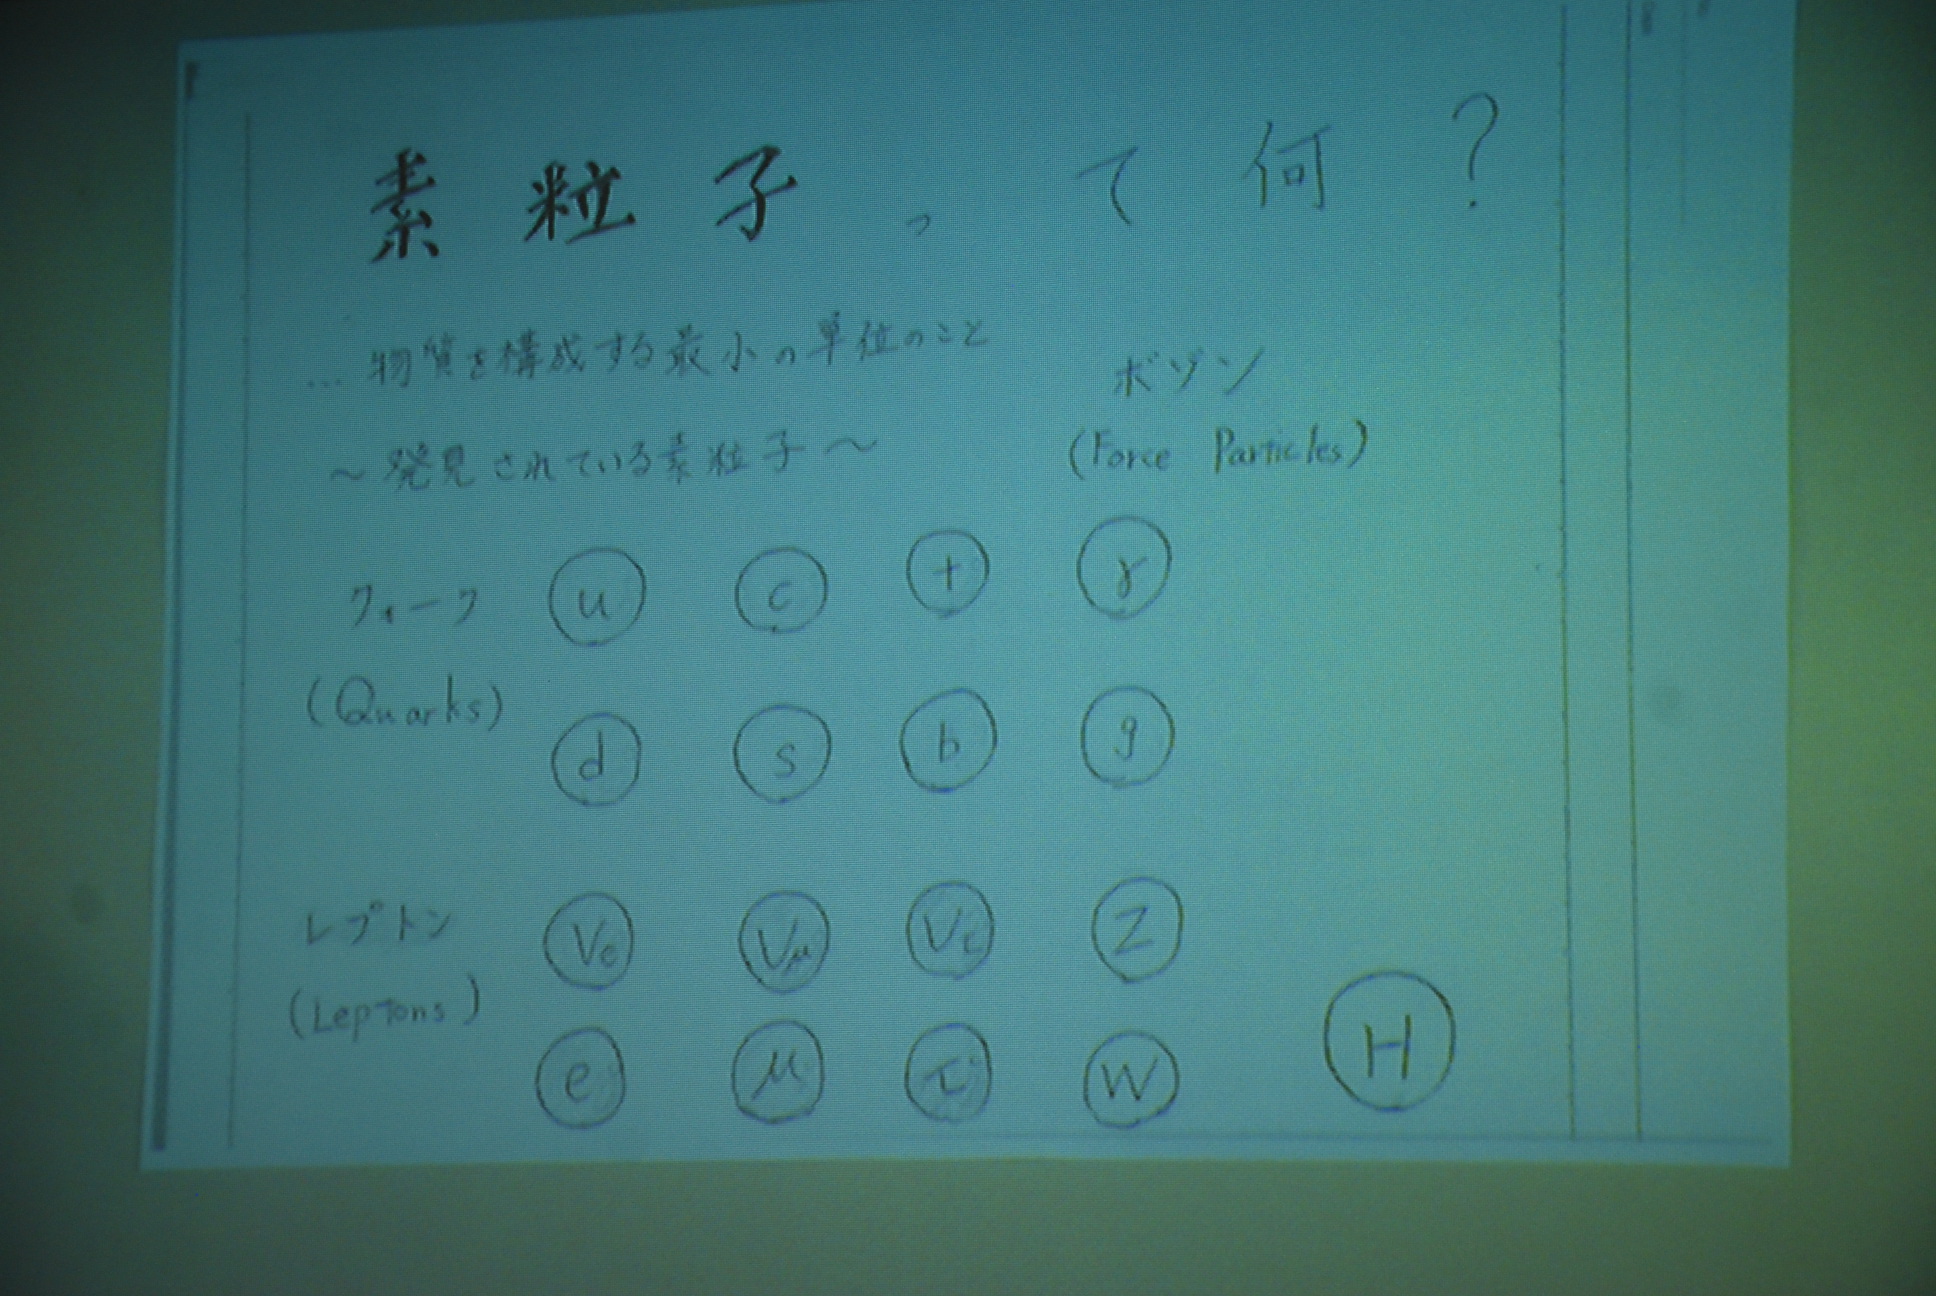 素粒子って何?
…物質を構成する最小の単位のこと
ボソン
(Force Particles)
~発見されている素粒子~
クォーク
(Quarks)
u c t γ
d s b g
レプトン
(Leptons)
Ve Vμ Vτ Z
e μ τ W
H